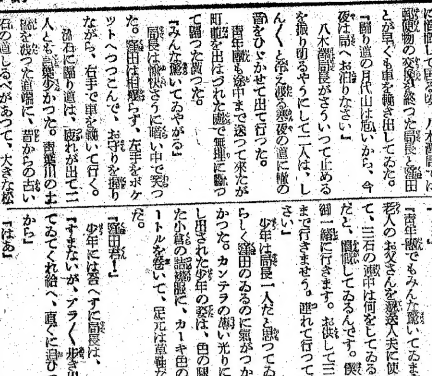 郵便物の交換が終つた局長と窪田
とが早くも車を輓き出してゐた。
『歸り道の月代山は危いから、今
夜は局へお泊りなさい』
八木郵局長がさういつて止める
を振り切るやうにして二人は、し
ん〳〵と冷え渡る寒夜の道に轍の
音をひゞかせて出て行つた。
靑年團も途中まで送つて來たが
町境を出はづれた處で無理に斷つ
て歸つて貰つた。
『みんな驚いてゐやがる』
局長は愉快さうに暗い中で笑つ
た。窪田は相變らず、左手をポケ
ツトへつつこんで、お守りを握り
ながら、右手で車を輓いて行く。
流石に歸り道は、疲れが出て二
人とも言葉少かつた。靑葉川の土
橋を渡つた道端に、昔からの古い
石の道しるべがあつて、大きな松
『靑年團でもみんな驚いてゐま
老人のお父さんを遞送人夫に使
て、三石の連中は何をしてゐる
だと、憤慨してゐるんです。僕
御一緒に行きます。お供して三
まで行きませう。連れて行つて
さい』
少年は局長一人だと思つてゐ
らしく窪田のゐるのに氣がつか
かつた。カンテラの薄い光りに
し出された少年の姿は、色の褪
た小倉の詰襟服に、カーキ色の
ートルを卷いて、足元は草鞋な
だ。
『窪田君!』
少年には答へずに局長は、
『すまないが、ブラ〳〵歩
てゐてくれ給へ、直ぐに追ひつ
から』
『はあ』